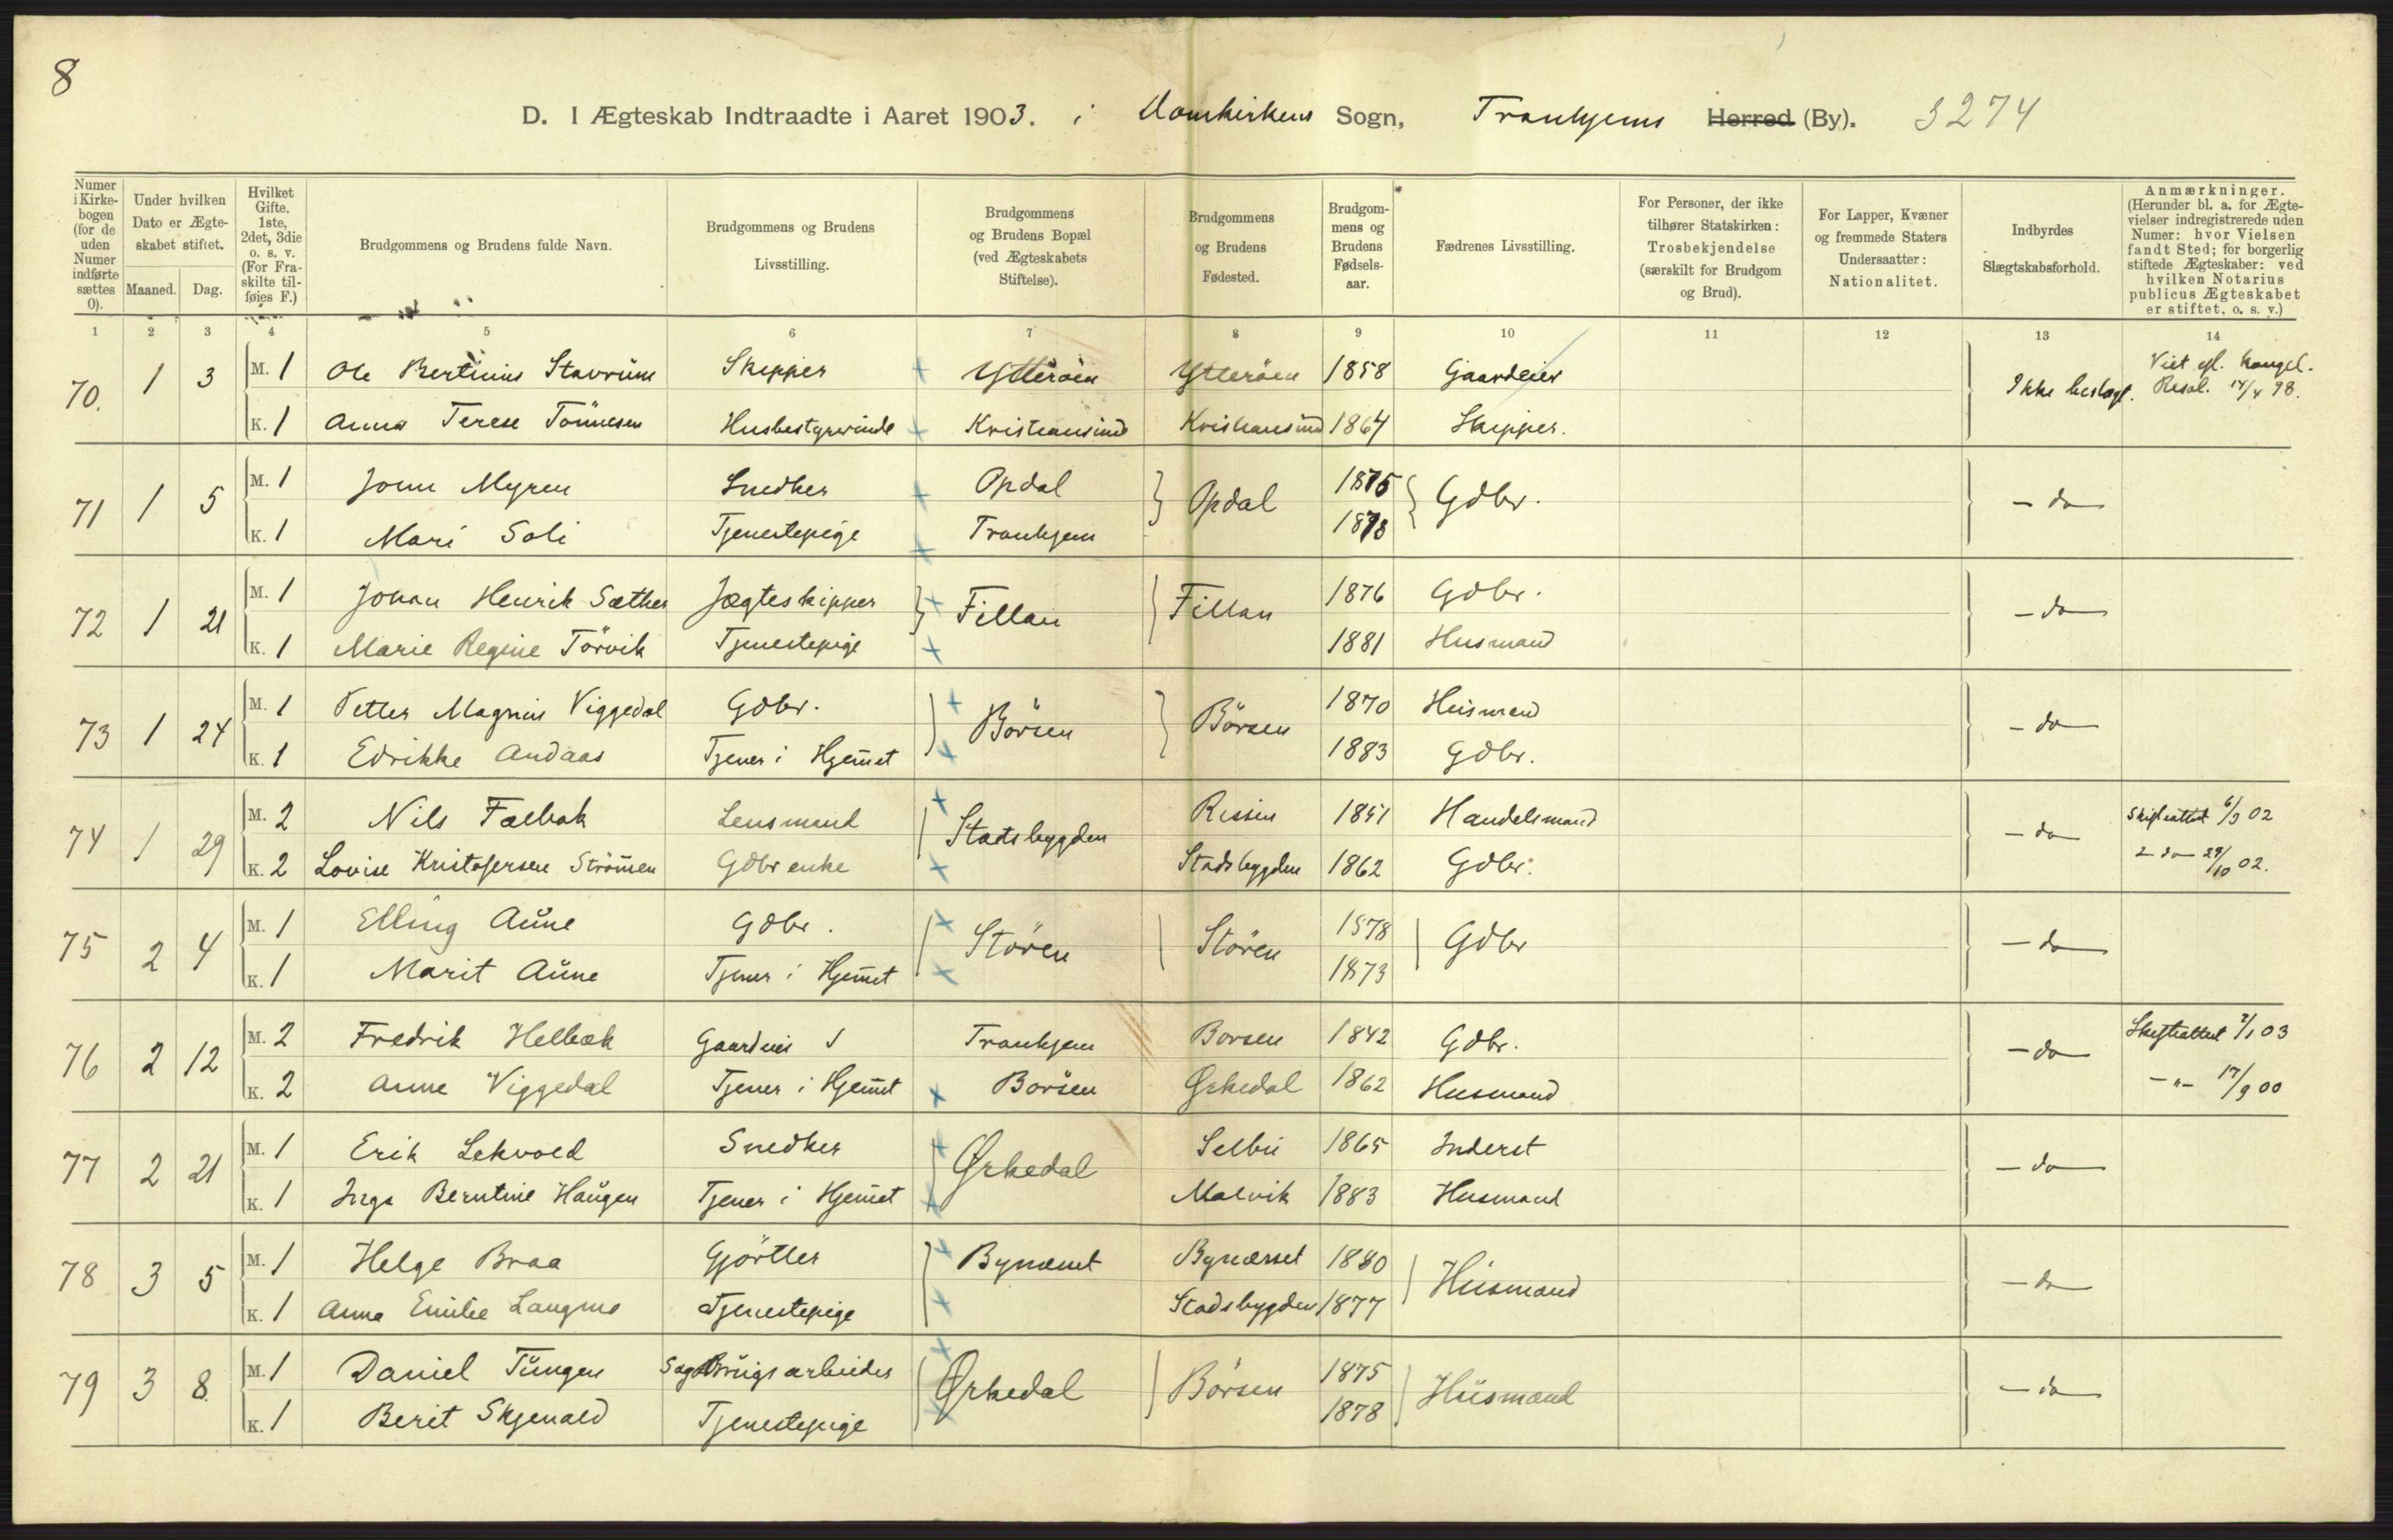 8
D. I Ægteskab Indtraadte i Aaret 1903. i Domkirkens Sogn, Trønhjems Herred (By). 3274
Numer i Kirkebogen (for de uden Numer indførte sættes 0).
Under hvilken Dato er Ægteskabet stiftet.
Maaned. Dag.
Hvilket Gifte. 1ste, 2det, 3die o. s. v. (For Fraskilte tilføies F.)
Brudgommens og Brudens fulde Navn.
Brudgommens og Brudens Livsstilling.
Brudgommens og Brudens Bopæl (ved Ægteskabets Stiftelse).
Brudgommens og Brudens Fødested.
Brudgommens og Brudens Fødselsaar.
Fædrenes Livsstilling.
For Personer, der ikke tilhører Statskirken: Trosbekjendelse (særskilt for Brudgom og Brud).
For Lapper, Kvæner og fremmede Staters Undersaatter: Nationalitet.
Indbyrdes Slægtskabsforhold.
Anmærkninger. (Herunder bl. a. for Ægtevielser indregistrerede uden Numer: hvor Vielsen fandt Sted; for borgerlig stiftede Ægteskaber: ved hvilken Notarius publicus Ægteskabet er stiftet, o. s. v.)
1 2 3 4 5 6 7 8 9 10 11 12 13 14
70. 1 3 M. 1 Ole Bertinius Stavrum Skipper Ytterøen Ytterøen 1858 Gaardeier Ikke beslægt. Viet efl. kongel. Resol. 14/4 98.
K. 1 Anna Terese Tønnesen Husbestyrerinde Kristiansund Kristiansund 1864 Skipper.
71 1 5 M. 1 John Myren Snedker Opdal Opdal 1875 Gdbr. - do -
K. 1 Mari Soli Tjenestepige Tronhjem 1878
72 1 21 M. 1 Johan Henrik Sæther Jægteskipper Fillan Fillan 1876 Gdbr. - do -
K. 1 Marie Regine Törvik Tjenestepige 1881 Husmand
73 1 24 M. 1 Petter Magnus Viggedal Gdbr. Börsen Börsen 1870 Husmand - do -
K. 1 Edrikke Andaas Tjener i Hjem̄et 1883 Gdbr.
74 1 29 M. 2 Nils Falbak Lensmand Stadsbygden Rissen 1851 Handelsmand - do - Skifteattest 6/3 02
K. 2 Lovise Kristofersen Ström̄en Gdbr enke Stadsbygden 1862 Gdbr. - do - 29/10 02.
75 2 4 M. 1 Elling Aune Gdbr. Støren Støren 1878 Gdbr - do -
K. 1 Marit Aune Tjener i Hjem̄et 1873
76 2 12 M. 2 Fredrik Helbæk Gaardeier Tronhjem Børsen 1842 Gdbr. - do - Skifteattest 2/1 03
K. 2 Anne Viggedal Tjener i Hjem̄et Børsen Ørkedal 1862 Husmand - " - 17/9 00
77 2 21 M. 1 Erik Lekvold Snedker Ørkedal Selbu 1865 Inderst - do -
K. 1 Inga Berntine Haugen Tjener i Hjem̄et Malvik 1883 Husmand
78 3 5 M. 1 Helge Braa Gjörtler Bynæsset Bynæsset 1880 Husmand - do -
K. 1 Anna Emilie Langmo Tjenestepige Stadsbygden 1877
79 3 8. M. 1 Daniel Tungen Sagbrugsarbeider Ørkedal Börsen 1875 Husmand - do -
K. 1 Berit Skjenald Tjenestepige 1878